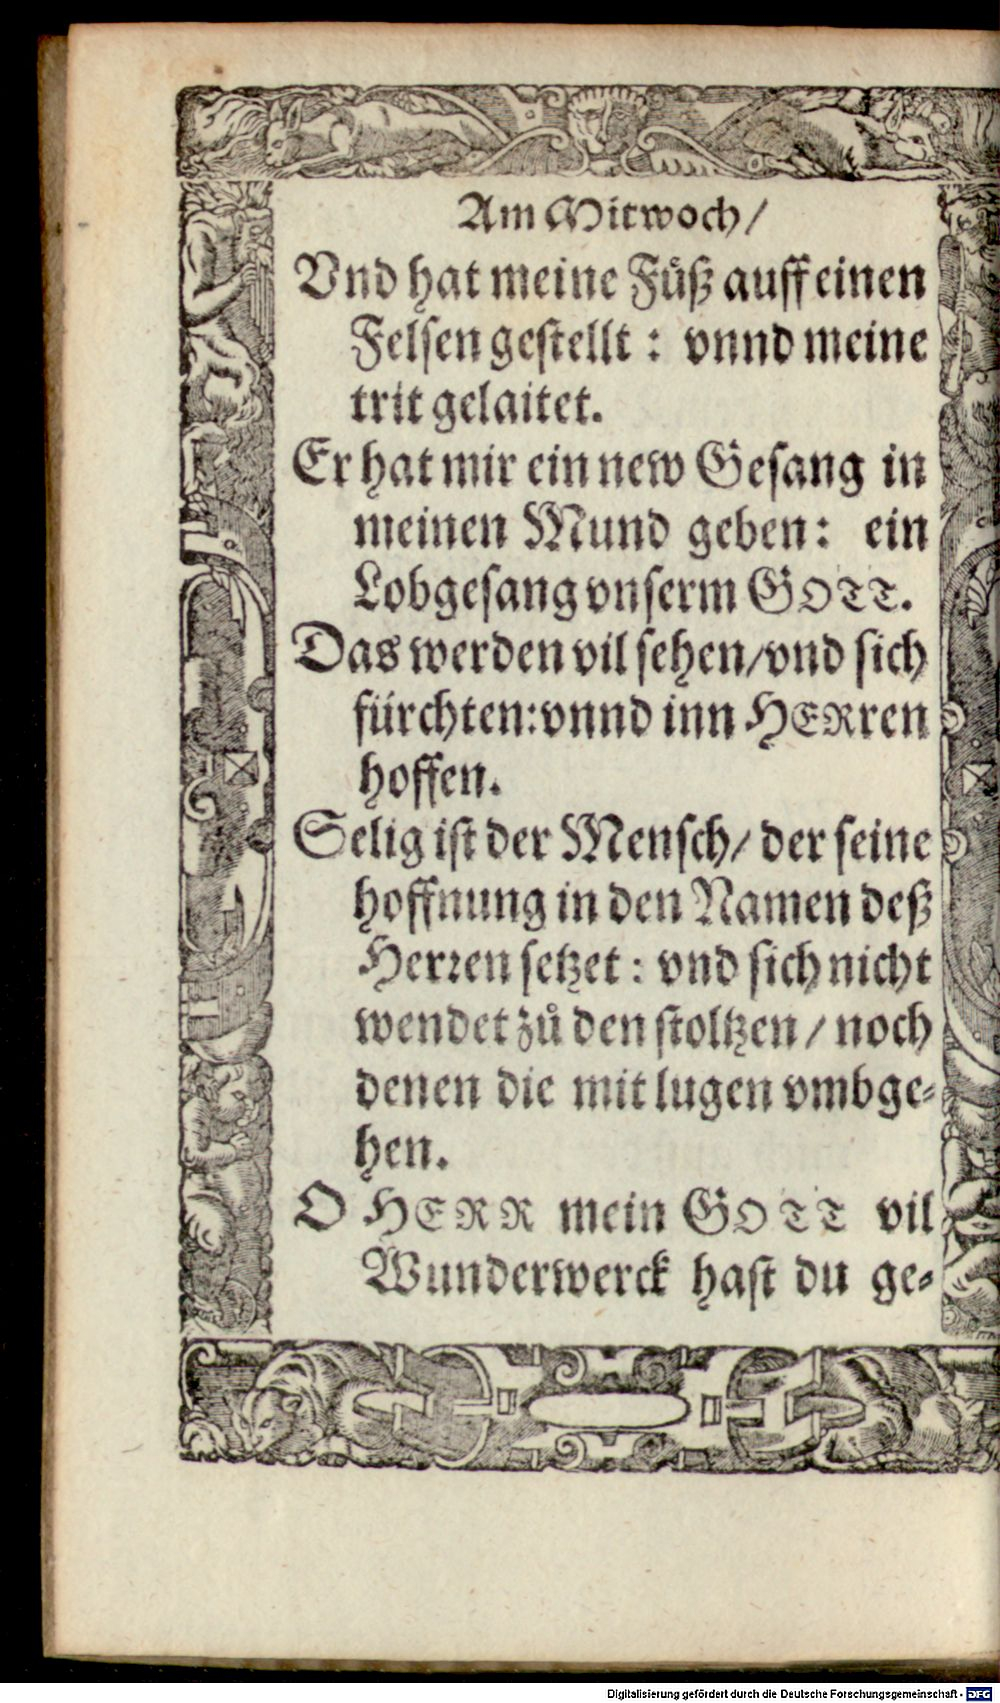 Am Mitwoch/
Vnd hat meine Fuͤß auff einen
Felsen gestellt : vnnd meine
trit gelaitet.
Er hat mir ein new Gesang in
meinen Mund geben: ein
Lobgesang vnserm GOTT.
Das werden vil sehen/vnd sich
fürchten:vnnd inn HERren
hoffen.
Selig ist der Mensch/ der seine
hoffnung in den Namen deß
Herꝛen setzet : vnd sich nicht
wendet zuͦ den stoltzen / noch
denen die mit lugen vmbge⸗
hen.
O HERR mein GOTT vil
Wunderwerck hast du ge⸗
Digitalisierung gefördert durch die Deutsche Forschungsgemeinschaft - DFG